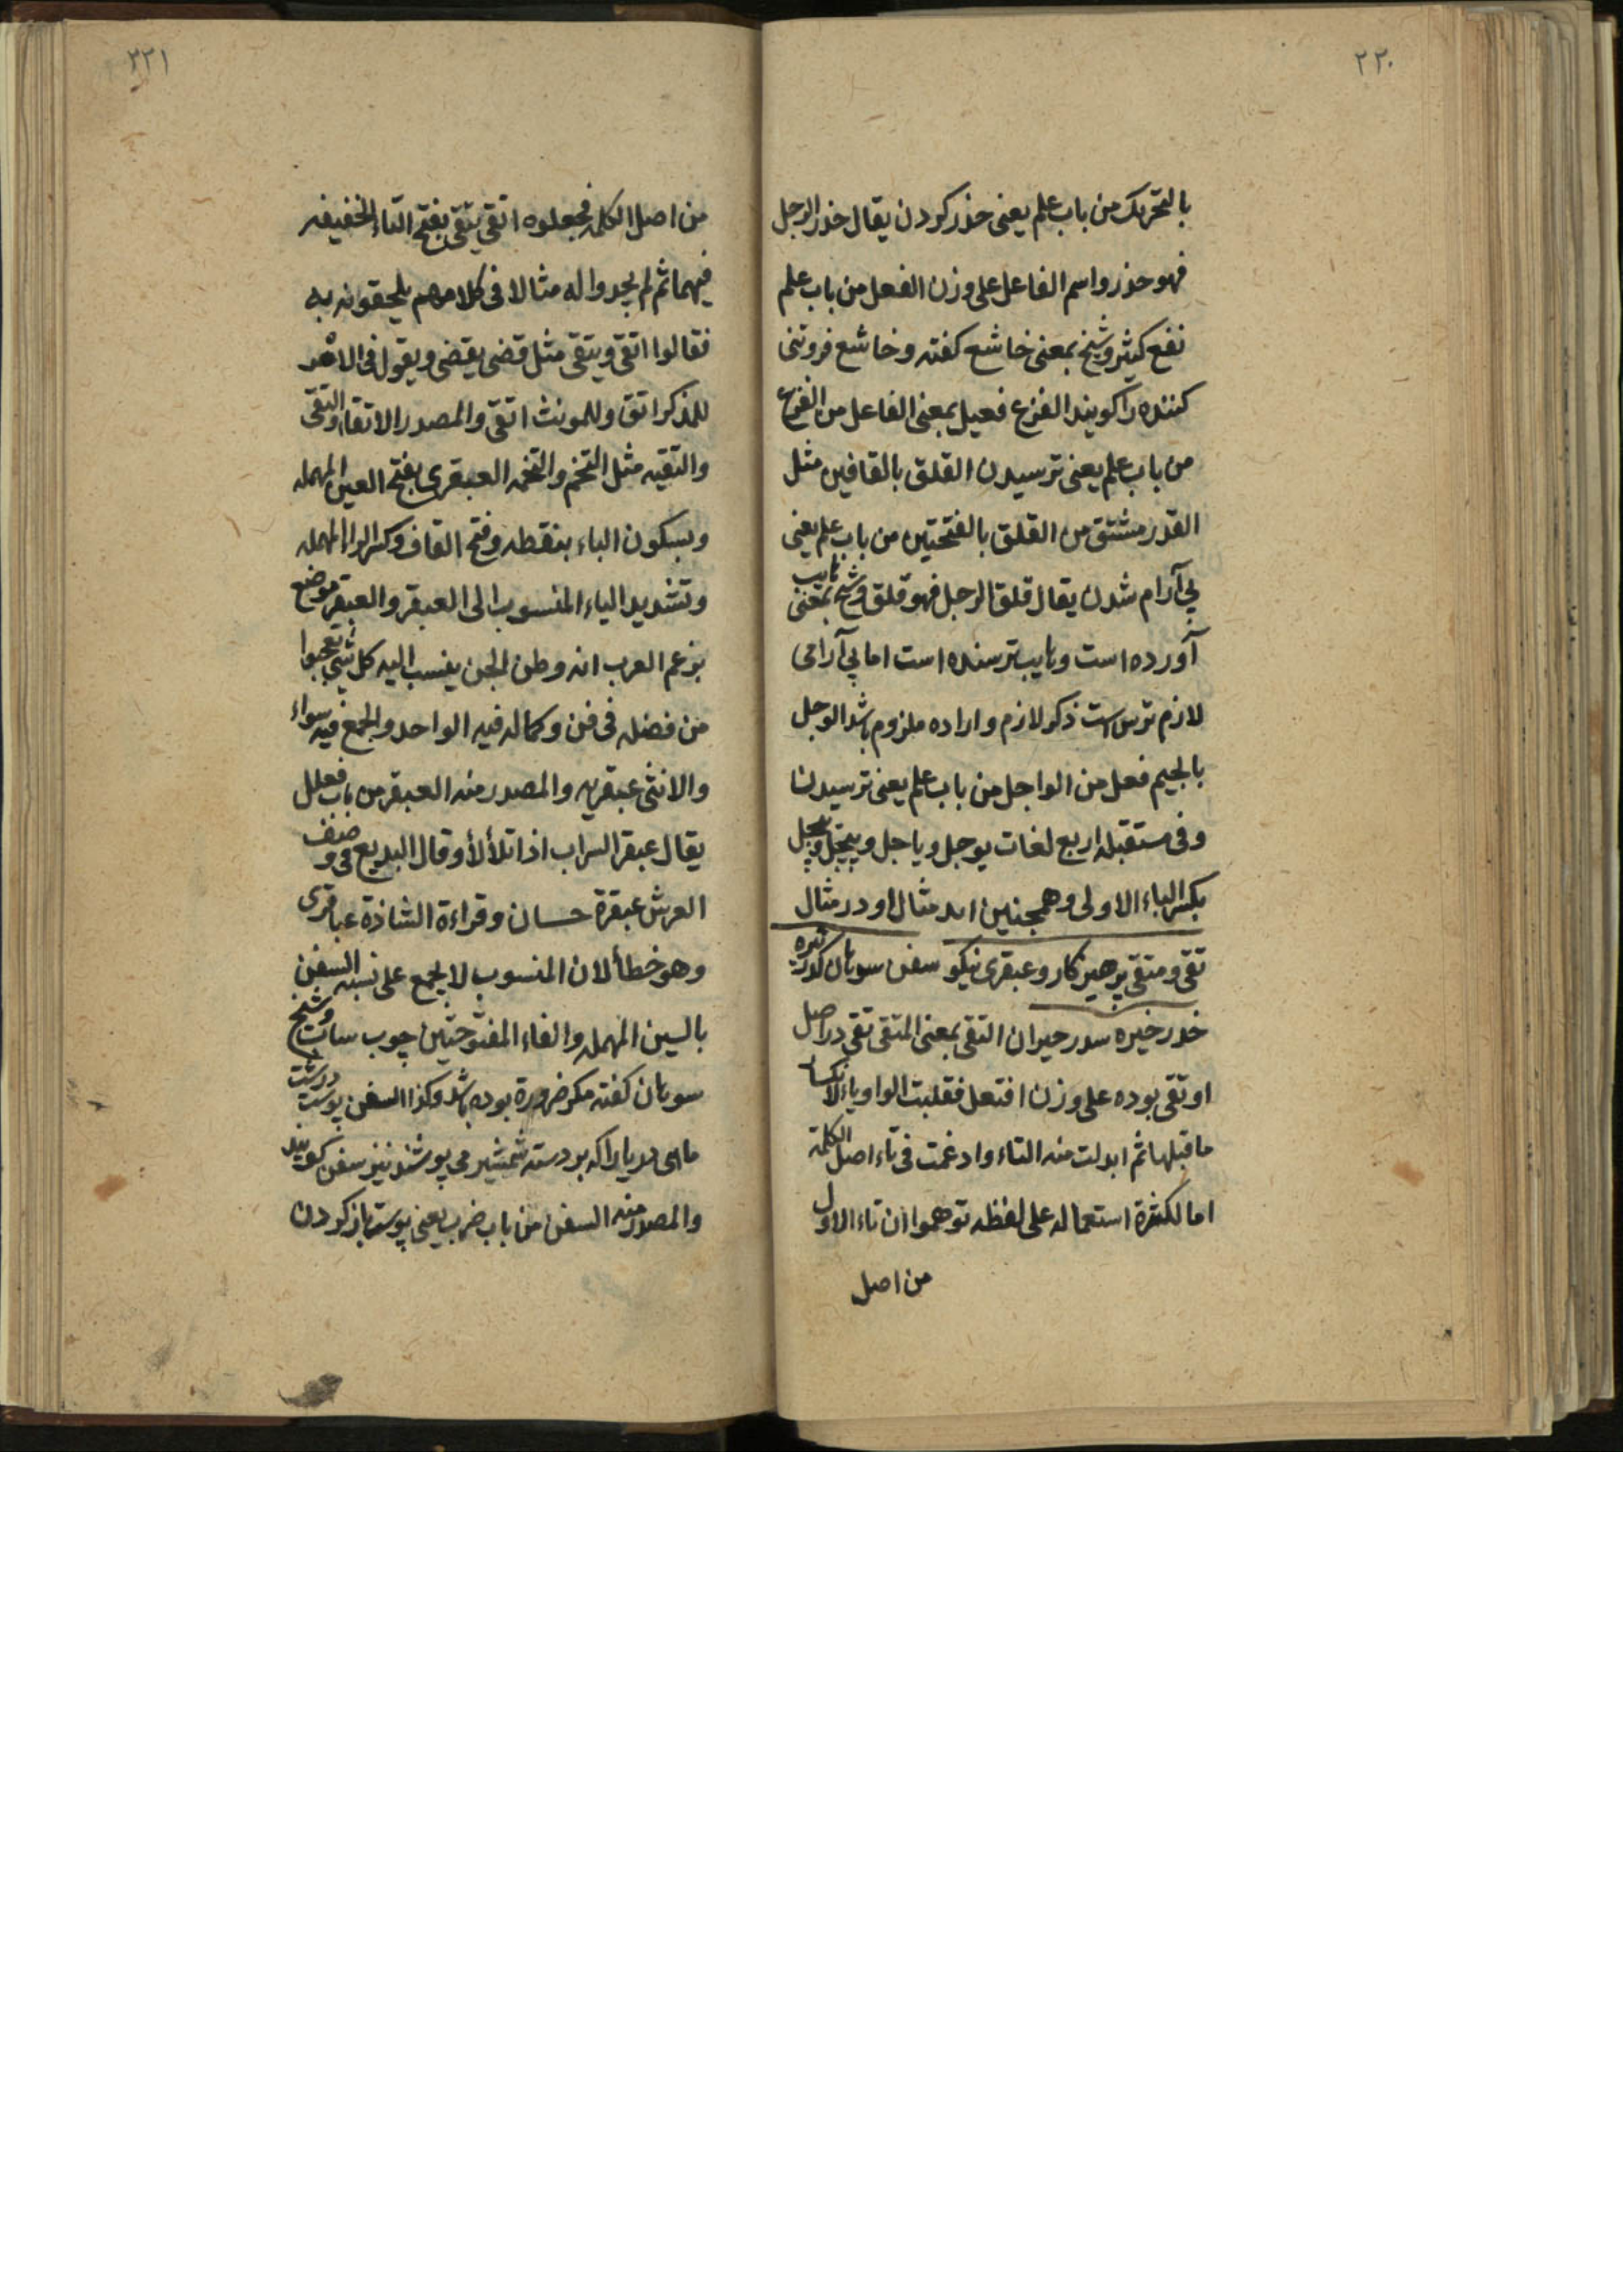 ٢٢٠
بالتحریک من باب علم یعنی حذر کردن یقال حذر الرجل
فهو حذر واسم الفاعل علی وزن الفعل من باب علم
نفع کثیر و شیخ بمعنی خاشع کفته و خاشع فروتنی
کننده را کویند الفزع فعیل بمعنی الفاعل من الفزع
من باب علم یعنی ترسیدن القلق بالقافین مثل
القدر مشتق من القلق بالفتحتین من باب علم یعنی
بی آرام شدن یقال قلق الرجل فهو قلق و شیخ بمعنی هایب
آورده است و هایب ترسنده است اما بی آرامی
لازم ترس است ذکر لازم و اراده ملزوم باشد الوجل
بالجیم فعل من الواجل من باب علم یعنی ترسیدن
و فی مستقبله اربع لغات یوجل و یاجل و ییجل و ییجل
بکسر الیاء الاولی و همچنین اند مثال او در مثال
تقی و متقی پرهیزکار و عبقری نیکو سفن سوهان کدر تیره
خدر خیره سدر حیران التقی بمعنی المتقی تقی در اصل
اوتقی بوده علی وزن افتعل فقلبت الواو یاء لانکسار
ما قبلها ثم ابدلت منه التاء وادغمت فی تاء اصل الکلمة
اما لکثرة استعماله علی لفظه توهموا ان تاء الاول
من اصل
٢٢١
من اصل الکلمه فجعلوه اتقی یتقی بفتح التاء الخفیفه
فیهما ثم لم یجدوا له مثالا فی کلامهم یلحقونه به
فقالوا اتقی و یتقی مثل قضی یقضی و یقول فی الامر
للمذکر اتق و للمونث اتقی والمصدر الاتقاء والتقی
والتقیه مثل التخم والتخمه العبقری بفتح العین المهمله
و بسکون الباء بنقطه و فتح القاف و کسر الراء المهمله
و تشدید الیاء المنسوب الی العبقر والعبقر موضع
بزعم العرب انه وطن الجن ینسب الیه کل شیء تعجبوا
من فضله فی فن و کماله فیه الواحد والجمع فیه سواء
والانثی عبقریه والمصدر منه العبقر من باب فعلل
یقال عبقر السراب اذا تلألأ و قال البدیع فی وصف
العرش عبقرة حسان و قراءة الشاذة عباقری
وهو خطأ لان المنسوب لا یجمع علی نسبه السفن
بالسین المهمله والفاء المفتوحتین چوب سات و شیخ
سوهان کفته مکر ضرورة بوده باشد وکذا السفن پوست درشت
ماهی دریا را که بر دسته شمشیر می پوشند نیز سفن کویند
والمصدر منه السفن من باب ضرب یعنی پوست باز کردن